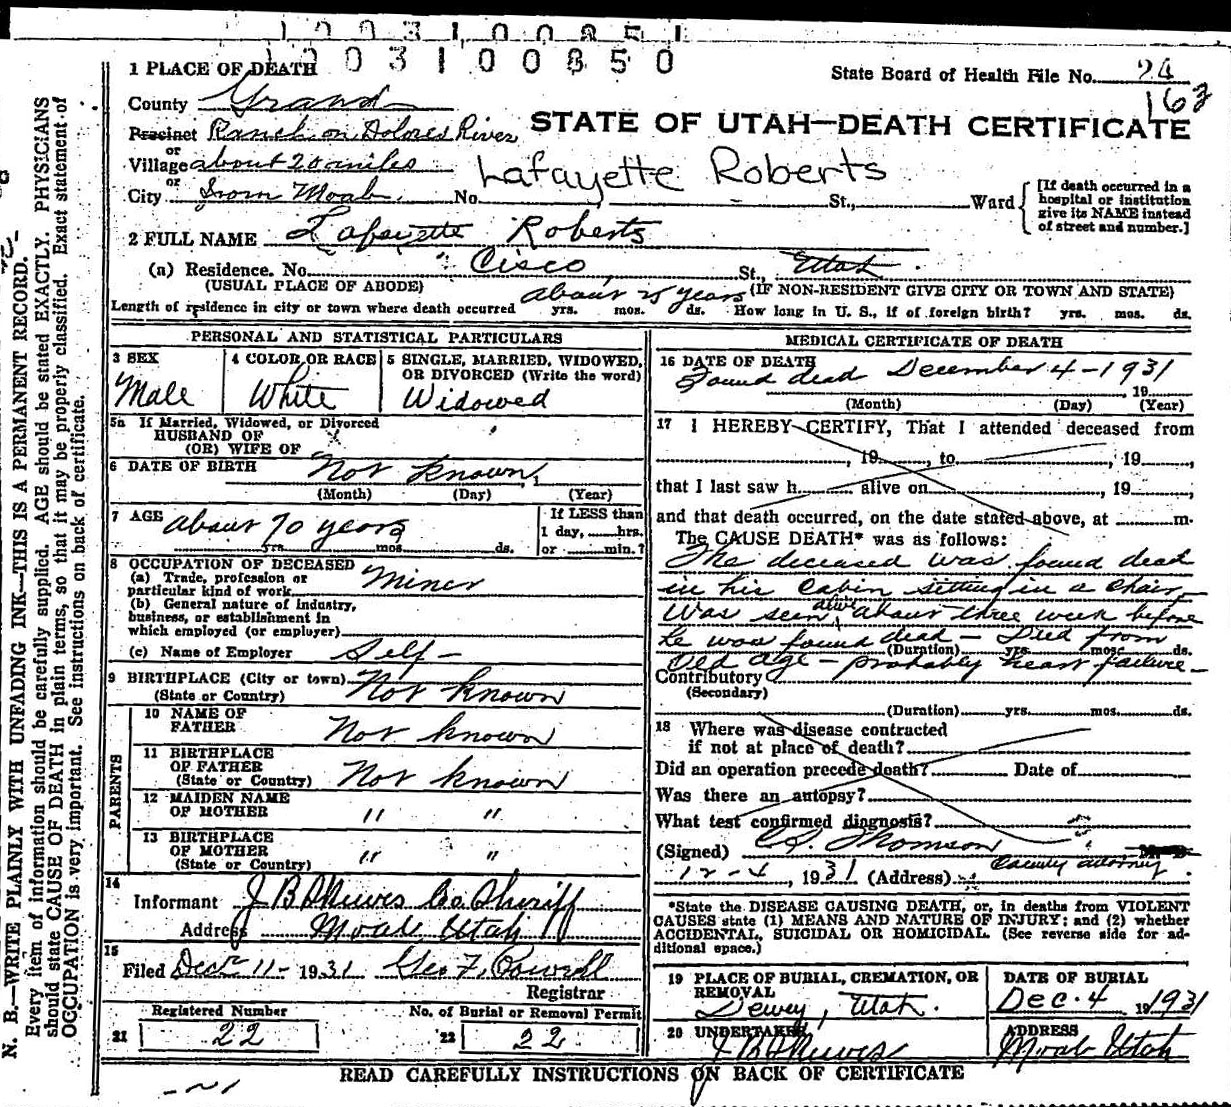 1003100851
1003100850
1 PLACE OF DEATH
State Board of Health File No. 24
163
County Grand
STATE OF UTAH—DEATH CERTIFICATE
Precinct Ranch on Dolores River
or
Village about 20 miles
or
City from Moab. No. St., Ward
Lafayette Roberts
[If death occurred in a
hospital or institution
give its NAME instead
of street and number.]
2 FULL NAME Lafayette Roberts
(a) Residence. No. Cisco, St., Utah.
(USUAL PLACE OF ABODE) (IF NON-RESIDENT GIVE CITY OR TOWN AND STATE)
Length of residence in city or town where death occurred about 25 years yrs. mos. ds. How long in U. S., if of foreign birth? yrs. mos. ds.
PERSONAL AND STATISTICAL PARTICULARS
3 SEX
Male
4 COLOR OR RACE
White
5 SINGLE, MARRIED, WIDOWED,
OR DIVORCED (Write the word)
Widowed
5a If Married, Widowed, or Divorced
HUSBAND OF
(OR) WIFE OF
6 DATE OF BIRTH Not known
(Month) (Day) (Year)
7 AGE about 70 years
yrs. mos. ds.
If LESS than
1 day, hrs.
or min.?
8 OCCUPATION OF DECEASED
(a) Trade, profession or
particular kind of work Miner
(b) General nature of industry,
business, or establishment in
which employed (or employer)
(c) Name of Employer Self —
9 BIRTHPLACE (City or town) Not known
(State or Country)
PARENTS
10 NAME OF
FATHER Not known
11 BIRTHPLACE
OF FATHER
(State or Country) Not known
12 MAIDEN NAME
OF MOTHER " "
13 BIRTHPLACE
OF MOTHER
(State or Country) " "
14
Informant J B Skewes Co. Sheriff
Address Moab Utah
15
Filed Dec 11 - 1931
Registrar
Registered Number
21 22
No. of Burial or Removal Permit
22 22
MEDICAL CERTIFICATE OF DEATH
16 DATE OF DEATH
Found dead December 4 - 1931
, 19
(Month) (Day) (Year)
17 I HEREBY CERTIFY, That I attended deceased from
, 19 , to , 19 ,
that I last saw h alive on , 19 ,
and that death occurred, on the date stated above, at m.
The CAUSE DEATH* was as follows:
The deceased was found dead
in his cabin sitting in a chair
Was seen alive about three week before
he was found dead — Died from
(Duration) yrs. mos. ds.
Old age — probably heart failure —
Contributory
(Secondary)
(Duration) yrs. mos. ds.
18 Where was disease contracted
if not at place of death?
Did an operation precede death? Date of
Was there an autopsy?
What test confirmed diagnosis?
(Signed) Thomson
12-4, 1931 (Address) County attorney
*State the DISEASE CAUSING DEATH, or, in deaths from VIOLENT
CAUSES state (1) MEANS AND NATURE OF INJURY; and (2) whether
ACCIDENTAL, SUICIDAL OR HOMICIDAL. (See reverse side for ad-
ditional space.)
19 PLACE OF BURIAL, CREMATION, OR
REMOVAL
Dewey, Utah.
DATE OF BURIAL
Dec. 4 1931
20 UNDERTAKER
J B Skewes
ADDRESS
Moab Utah
READ CAREFULLY INSTRUCTIONS ON BACK OF CERTIFICATE
N. B.—WRITE PLAINLY WITH UNFADING INK—THIS IS A PERMANENT RECORD.
Every item of information should be carefully supplied. AGE should be stated EXACTLY. PHYSICIANS
should state CAUSE OF DEATH in plain terms, so that it may be properly classified. Exact statement of
OCCUPATION is very important. See instructions on back of certificate.